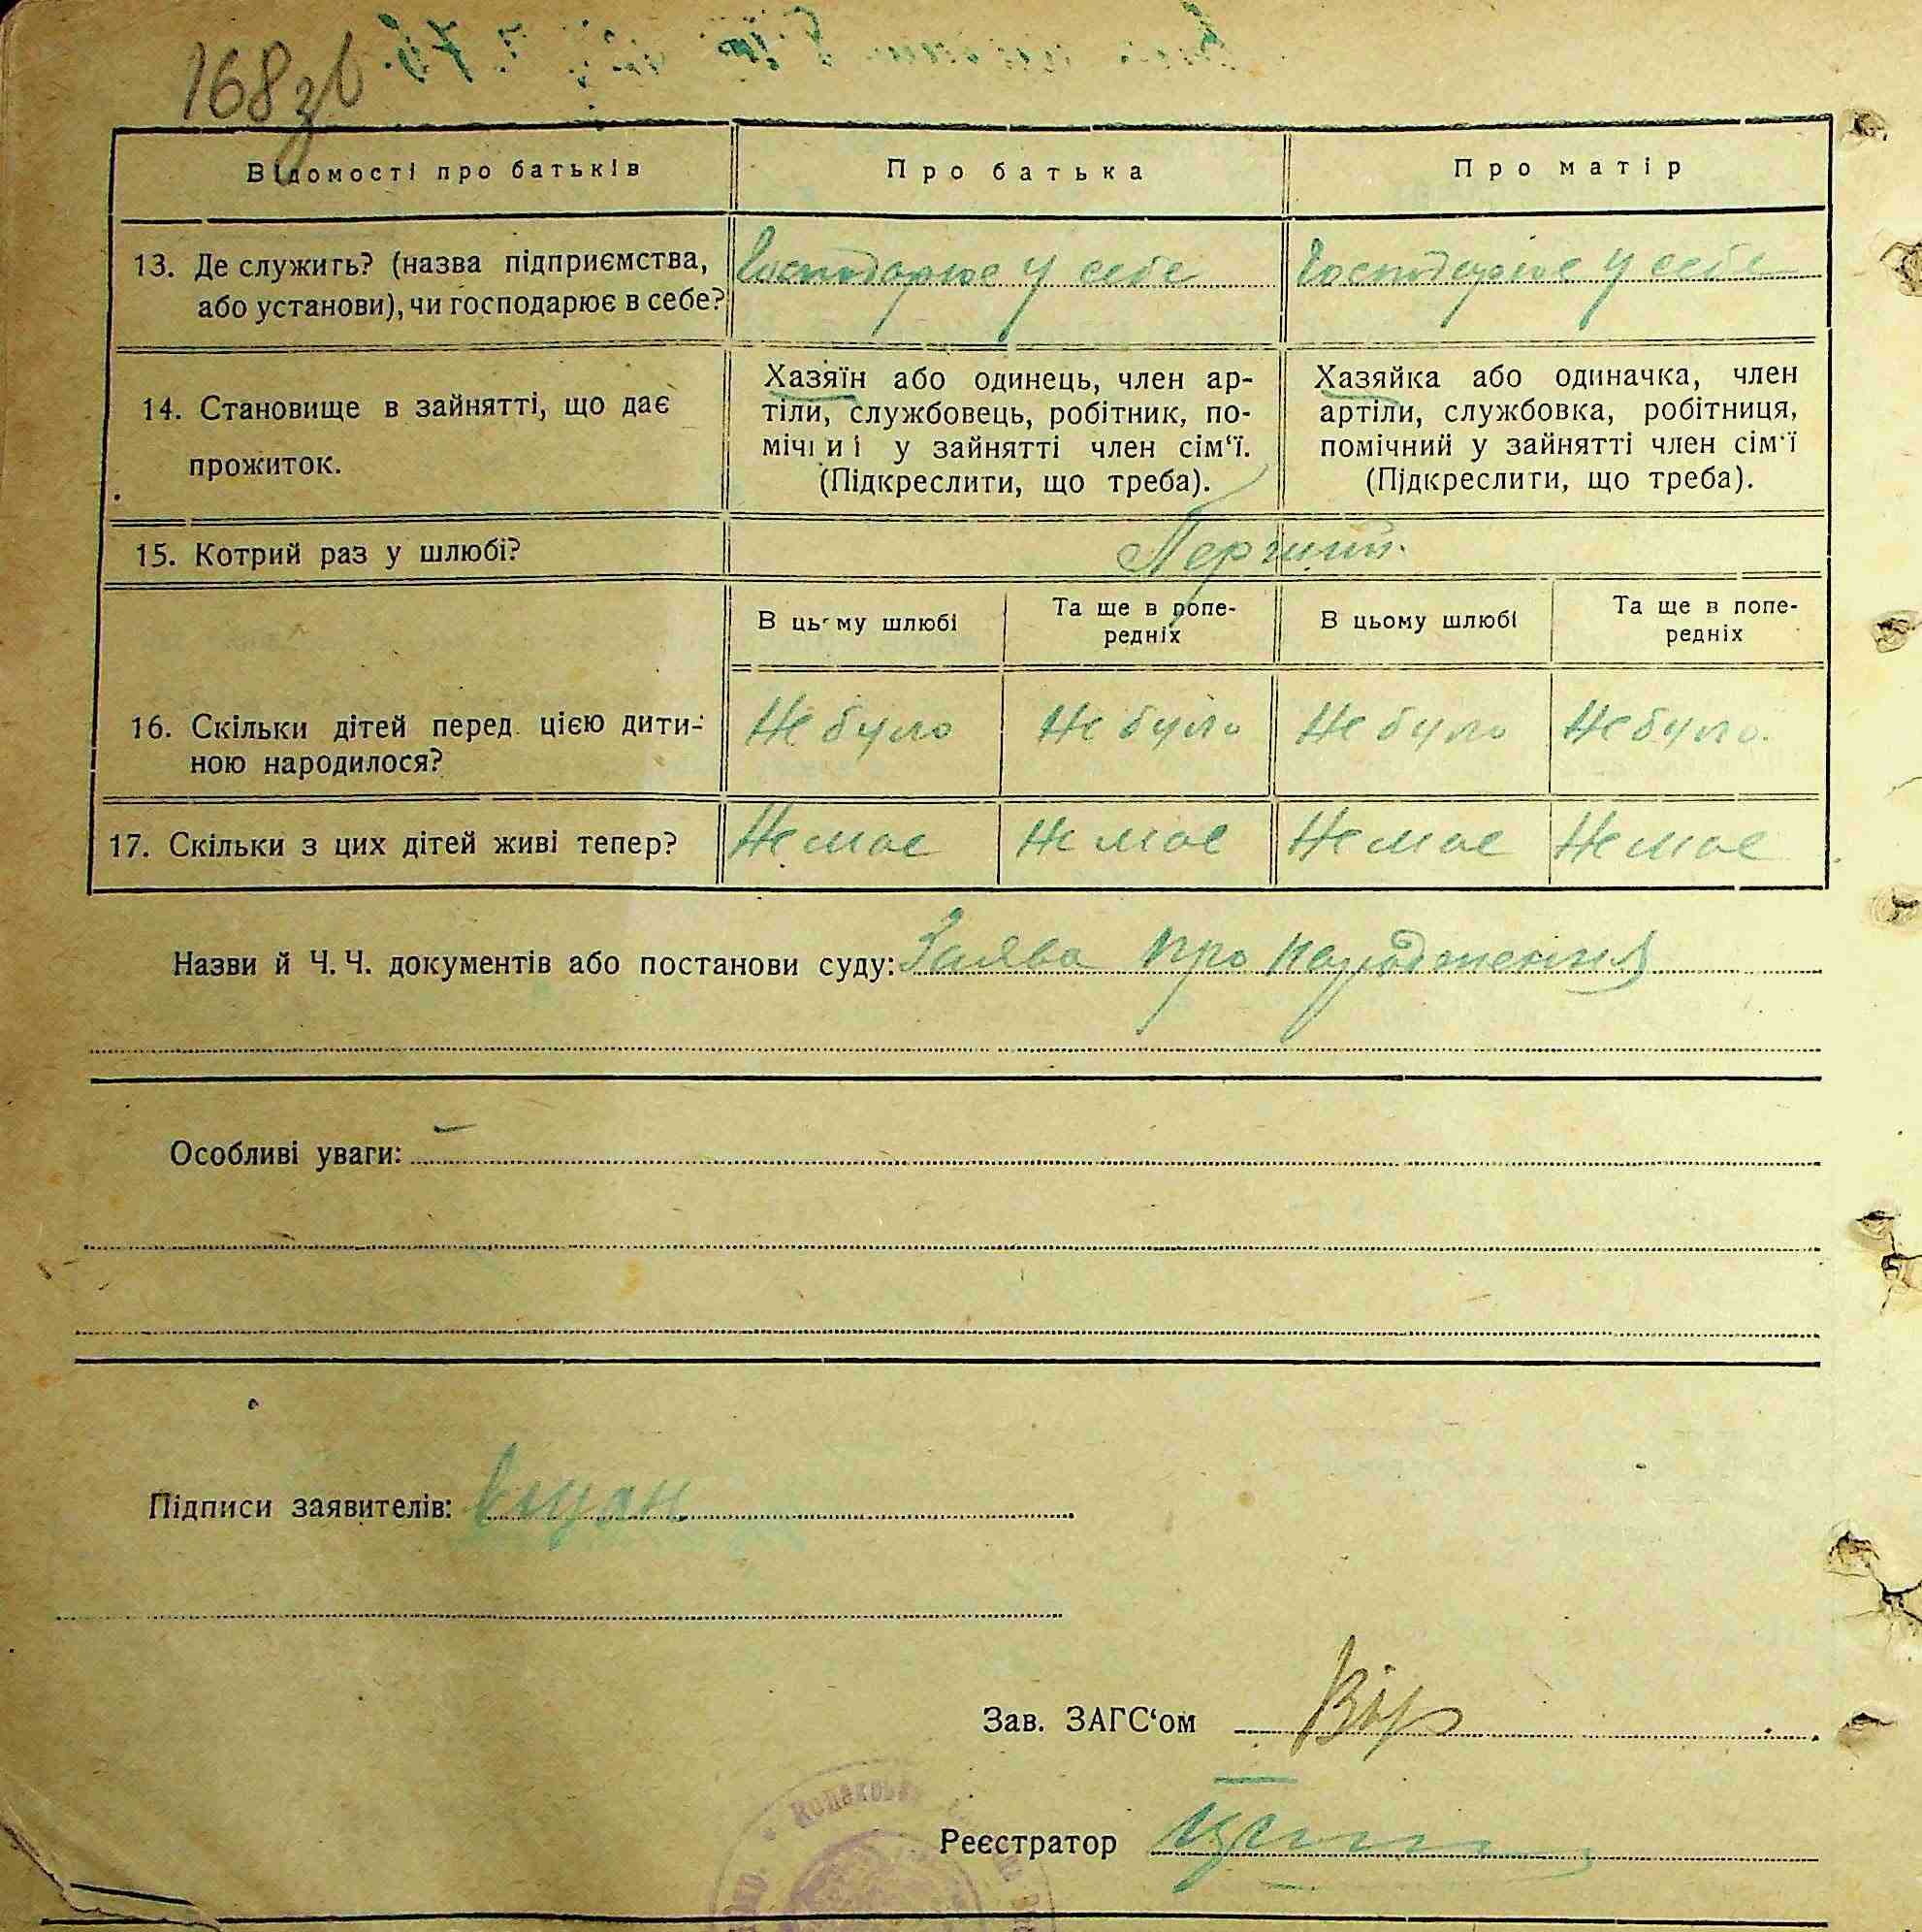 168 зв
Відомості про батьків
Про батька
Про матір
13. Де служить? (назва підприємства,
або установи), чи господарює в себе?
Господарює у себе
Господарює у себе
14. Становище в зайнятті, що дає
прожиток.
Хазяїн або одинець, член ар-
тіли, службовець, робітник, по-
мічний у зайнятті член сім‘ї.
(Підкреслити, що треба).
Хазяйка або одиначка, член
артіли, службовка, робітниця,
помічний у зайнятті член сім‘ї
(Підкреслити, що треба).
15. Котрий раз у шлюбі?
Перший.
В цьому шлюбі
Та ще в попе-
редніх
В цьому шлюбі
Та ще в попе-
редніх
16. Скільки дітей перед цією дити-
ною народилося?
Не було
Не було
Не було
Не було.
17. Скільки з цих дітей живі тепер?
Немає
Немає
Немає
Немає
Назви й Ч. Ч. документів або постанови суду: Заява про народження
Особливі уваги: —
Підписи заявителів:
Зав. ЗАГС‘ом
Реєстратор